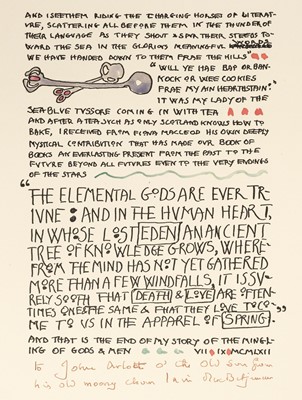 AND I SEE THEM RIDING THE CHARGING HORSES OF LITERAT-
VRE, SCATTERING ALL BEFORE THEM IN THE THUNDER OF
THEIR LANGUAGE AS THEY SHOUT & SPUR THEIR STEEDS TO-
WARD THE SEA IN THE GLORIOUS MEANINGFUL WORDS
WE HAVE HANDED DOWN TO THEM FRAE THE HILLS"
"WILL YE HAE BAP OR BAN-
NOCK OR WEE COOKIES
FRAE MY AIN HEARTHSTAIN."
IT WAS MY LADY OF THE
SEA-BLUE TYSSORE COMING IN WITH TEA
AND AFTER A TEA SUCH AS ONLY SCOTLAND KNOWS HOW TO
BAKE, I RECEIVED FROM FIONA MACLEOD HIS OWN DEEPLY
MYSTICAL CONTRIBUTION THAT HAS MADE OUR BOOK OF
BOOKS AN EVERLASTING PRESENT FROM THE PAST TO THE
FUTURE BEYOND ALL FUTURES EVEN TO THE VERY ENDINGS
OF THE STARS
"THE ELEMENTAL GODS ARE EVER TR-
IVNE : AND IN THE HVMAN HEART,
IN WHOSE LOST EDEN AN ANCIENT
TREE OF KNOWLEDGE GROWS, WHERE-
FROM THE MIND HAS NOT YET GATHERED
MORE THAN A FEW WINDFALLS, IT IS SV-
RELY SOOTH THAT DEATH & LOVE ARE OFTEN-
TIMES ONE & THE SAME & THAT THEY LOVE TO CO-
ME TO US IN THE APPAREL OF SPRING."
AND THAT IS THE END OF MY STORY OF THE MINGL-
ING OF GODS & MEN VII IX MCMLXII
To John Arlott of the Old
his old